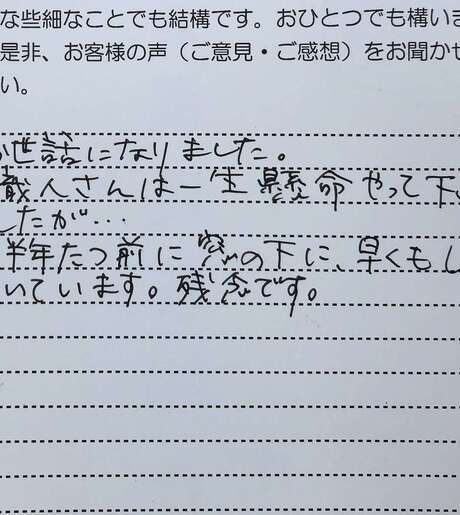 な些細なことでも結構です。おひとつでも構いま
是非、お客様の声（ご意見・ご感想）をお聞かせ
い。
お世話になりました。
職人さんは一生懸命やって下
したが…
半年たつ前に窓の下に、早くもし
いています。残念です。